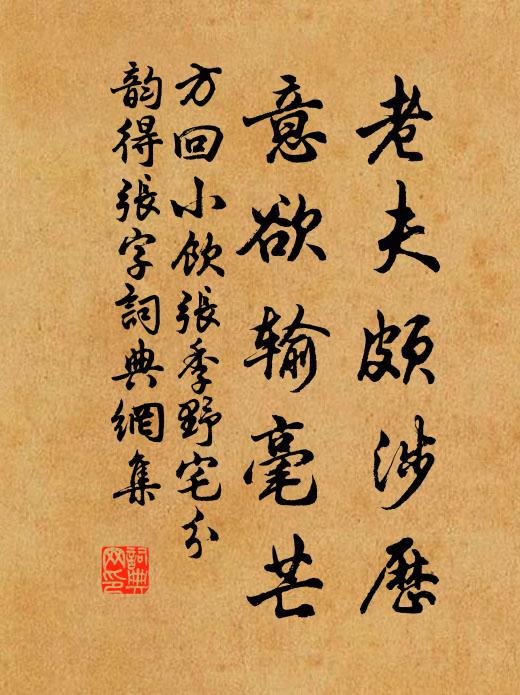 老夫頗涉歷
意欲輸毫芒
方回小飲張季野宅分
韵得張字詞典網集
詞典網印